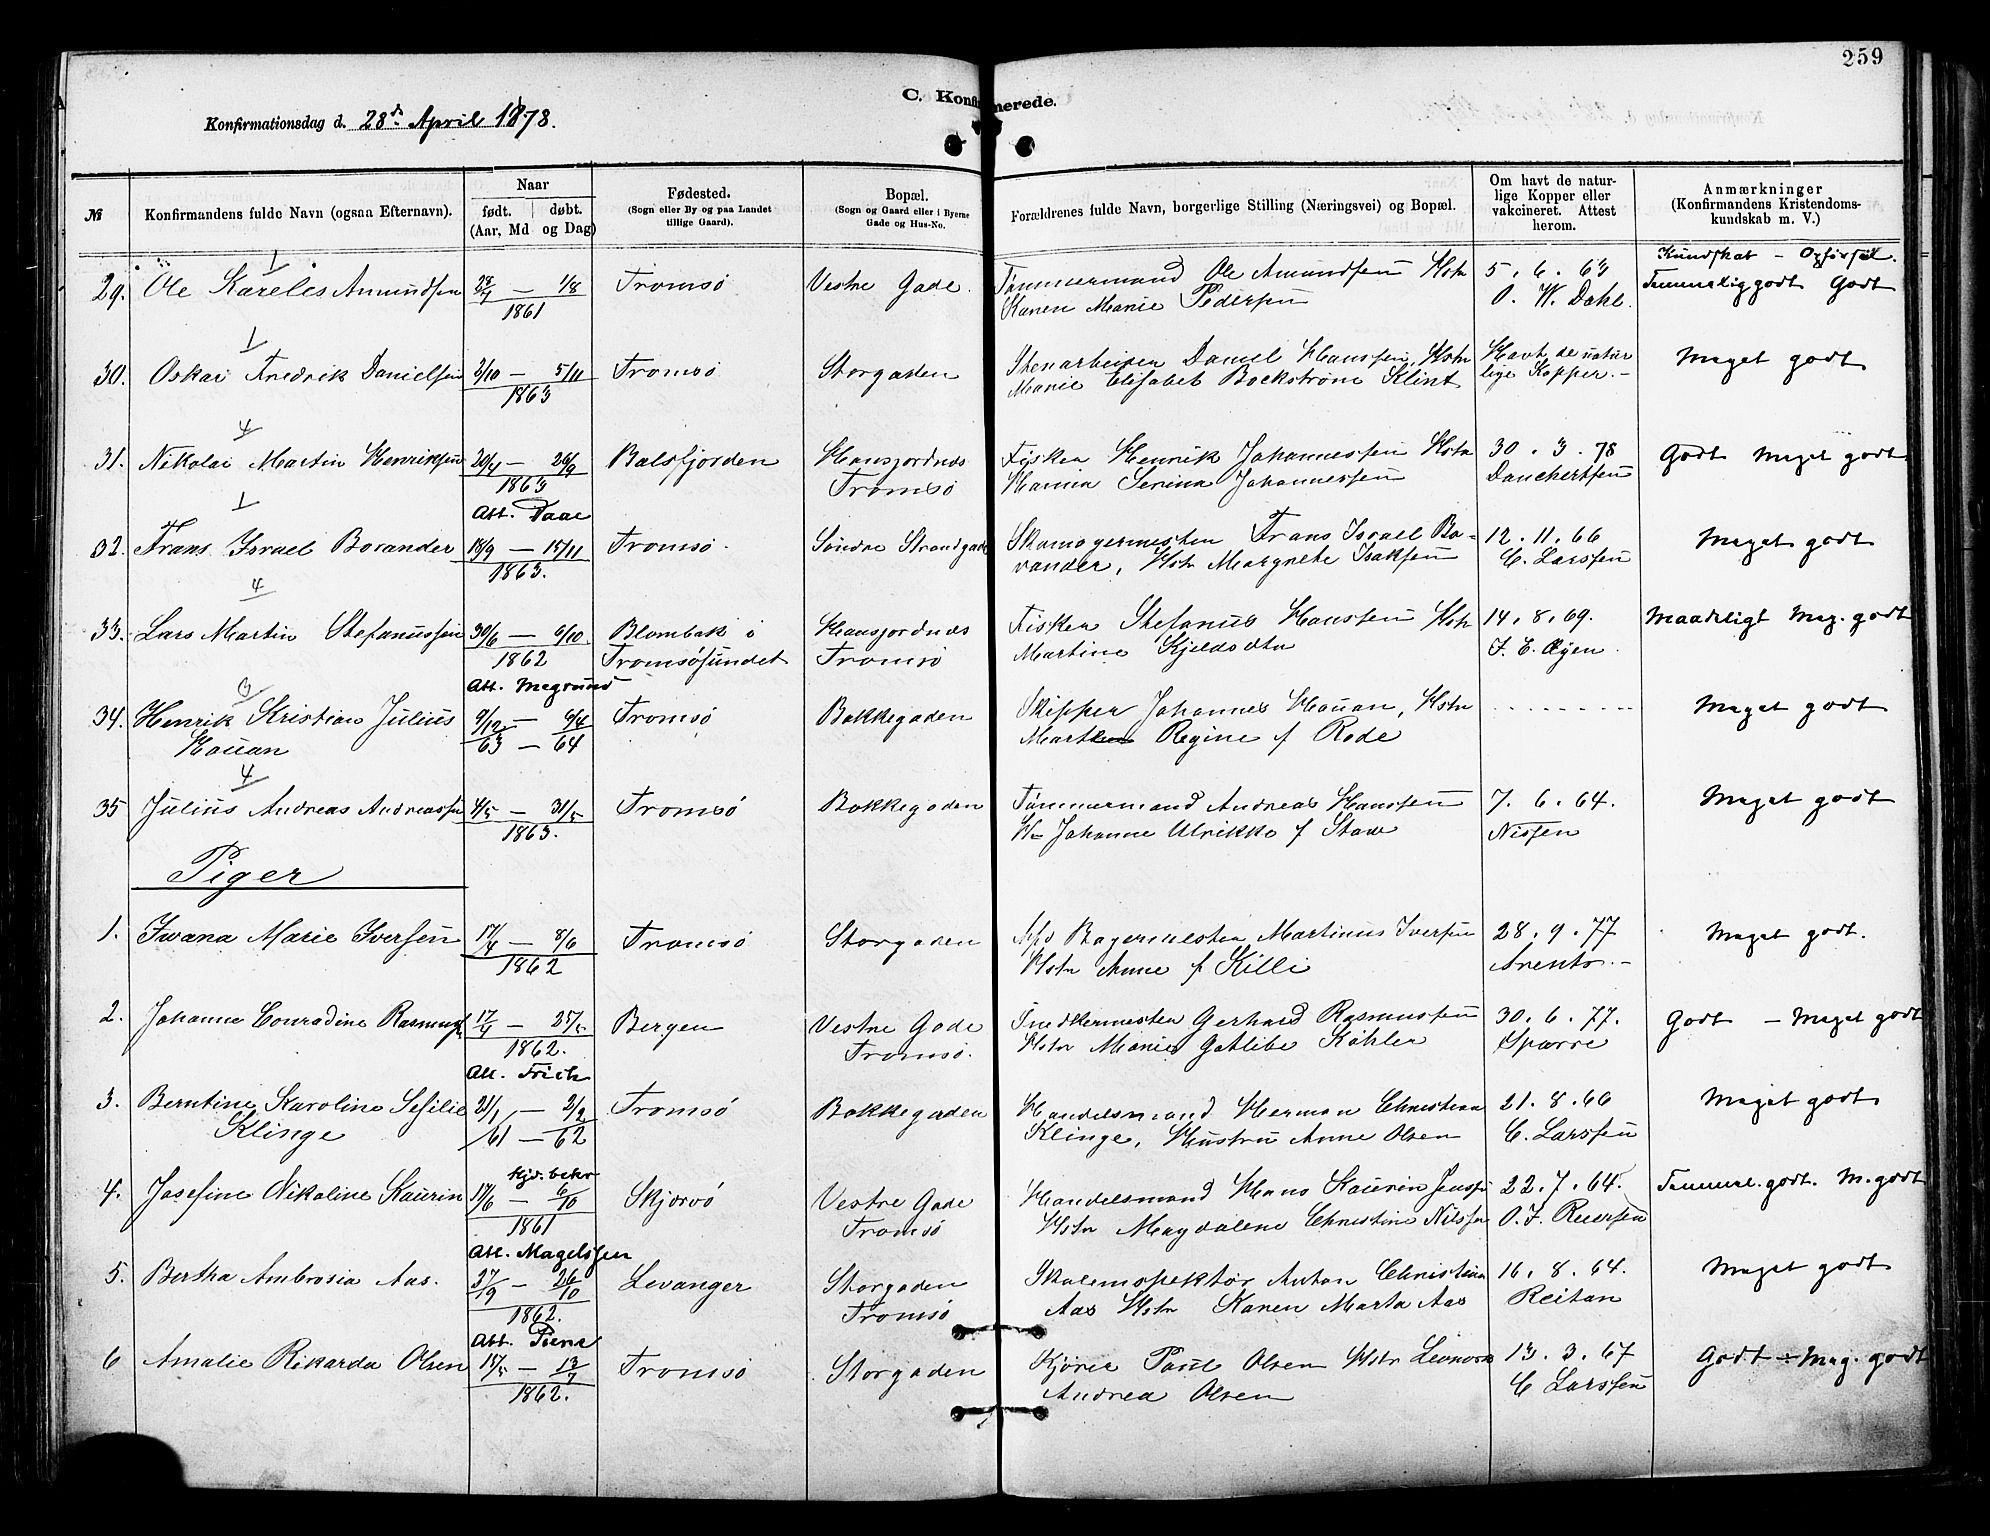 259
C. Konfirmerede.
Konfirmationsdag d. 28de April 1878.
№
Konfirmandens fulde Navn (ogsaa Efternavn).
Naar
født. døbt.
(Aar, Md og Dag)
Fødested.
(Sogn eller By og paa Landet
tillige Gaard).
Bopæl.
(Sogn og Gaard eller i Byerne
Gade og Hus-No.
Forældrenes fulde Navn, borgerlige Stilling (Næringsvei) og Bopæl.
Om havt de natur-
lige Kopper eller
vakcineret. Attest
herom.
Anmærkninger
(Konfirmandens Kristendoms-
kundskab m. V.)
Kundskab - Opførsel.
1
29. Ole Kareles Amundsen 1/8 Tromsø Vestre Gade. Tømmermand Ole Amundsen Hstr 5. 6. 63 Temmelig godt Godt
1861 Karen Marie Pedersen O. W. Dahl.
1
30. Oskar Fredrik Danielsen 3/10 — 5/11 Tromsø Storgaden Stenarbeider Daniel Hanssen, Hstr Havt de natur Meget godt
1863 Marie Elisabet Bockstrøm Klint lige Kopper.-
4
31. Nikolai Martin Henriksen 20/4 — 26/9 Balsfjorden Hansjordnæs Fisker Henrik Johannessen Hstr 30. 3. 78 Godt Meget godt
1863 Tromsø Hanna Serina Johannessen Danckertsen
1
Att. Daae
32. Frans Israel Borander 18/9 — 15/11 Tromsø. Søndre Strandgade Skomagermester Frans Israel Bo- 12. 11. 66 Meget godt
1863. rander, Hstr Margrethe Isaksen C. Larssen
4
33. Lars Martin Stefanussen 30/6 — 6/10. Blombak i Hansjordnæs Fisker Stefanus Hanssen Hstr 14. 8. 69. Maadeligt Meg. godt
1862 Tromsøsundet Tromsø Martine Kjeldsdtr J. C. Øyen.
3
Att. Megrund
34. Henrik Kristian Julius 9/12 — 6/4 Tromsø Bakkegaden Skipper Johannes Hauan, Hstr - - - - - - - - Meget godt
Hauan 63 — 64 Regine f Rode
4
35 Julius Andreas Andreassen 4/5 — 31/5 Tromsø Bakkegaden Tømmermand Andreas Hanssen 7. 6. 64. Meget godt
1863. H= Johanne Ulrikke f Stave Nissen
Piger
1. Iwana Marie Iversen 17/4 — 8/6 Tromsø Storgaden Bagermester Martinus Iversen 28. 9. 77 Meget godt.
1862 Hstr Anne f Killi Arentz.-
2. Johanne Conradine Rasmuss 17/4 — 25/5 Bergen Vestre Gade Snedkermester Gerhard Rasmussen 30. 6. 77. Godt — Meget godt
1862. Tromsø. Hstr Marie Gotlibe Köhler Sparre
Att. Frich
3. Berntine Karoline Sesilie 21/1 — 2/2 Tromsø Bakkegaden Handelsmand Herman Christian 21. 8. 66 Meget godt
Klinge 61 — 62 Klinge, Hustru Anne Olsen C. Larssen
Hjd. bekr
4. Josefine Nikoline Kaurin 17/6 — 6/10 Skjervø Vestre Gade Handelsmand Hans Kaurin Jenssen 22. 7. 64. Temmel. godt. M. godt
1861 Tromsø Hstr Magdalene Christine Nilssen O. J. Reiersen
Att. Magelssen
5. Bertha Ambrosia Aas. 27/9 — 26/10 Levanger Storgaden Skoleinspektør Anton Christian 16. 8. 64. Meget godt
1862. Tromsø Aas Hstr Karen Marta Aas Reitan
Att.
6 Amalie Rikarda Olsen 15/5 — 13/7 Tromsø Storgaden Kjører Paul Olsen Hstr Leonora 13. 3. 67 Godt ÷ Meg. godt
1862. Andrea Olsen C Larssen